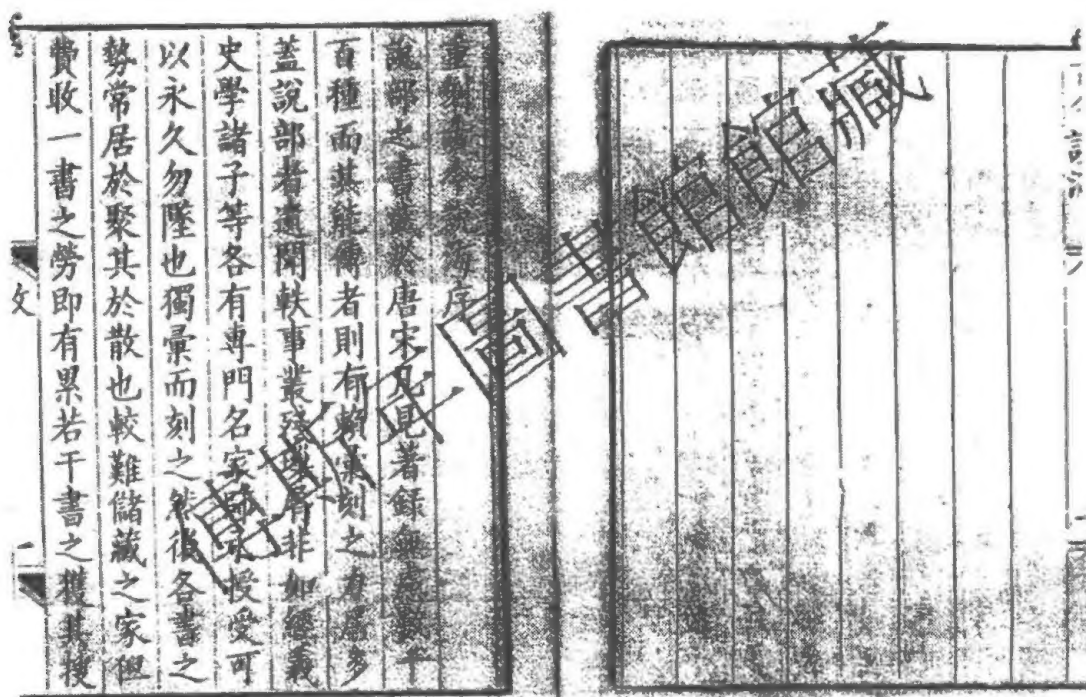 重刻古今說海序
說部之書盛於唐宋凡見著錄無慮數千
百種而其能傳者則有賴彙刻之力居多
蓋說部者遺聞軼事叢殘瑣屑非如經義
史學諸子等各有專門名家師承授受可
以永久勿墜也獨彙而刻之然後各書之
勢常居於聚其於散也較難儲藏之家但
費收一書之勞即有累若干書之獲其搜
圖書館館藏